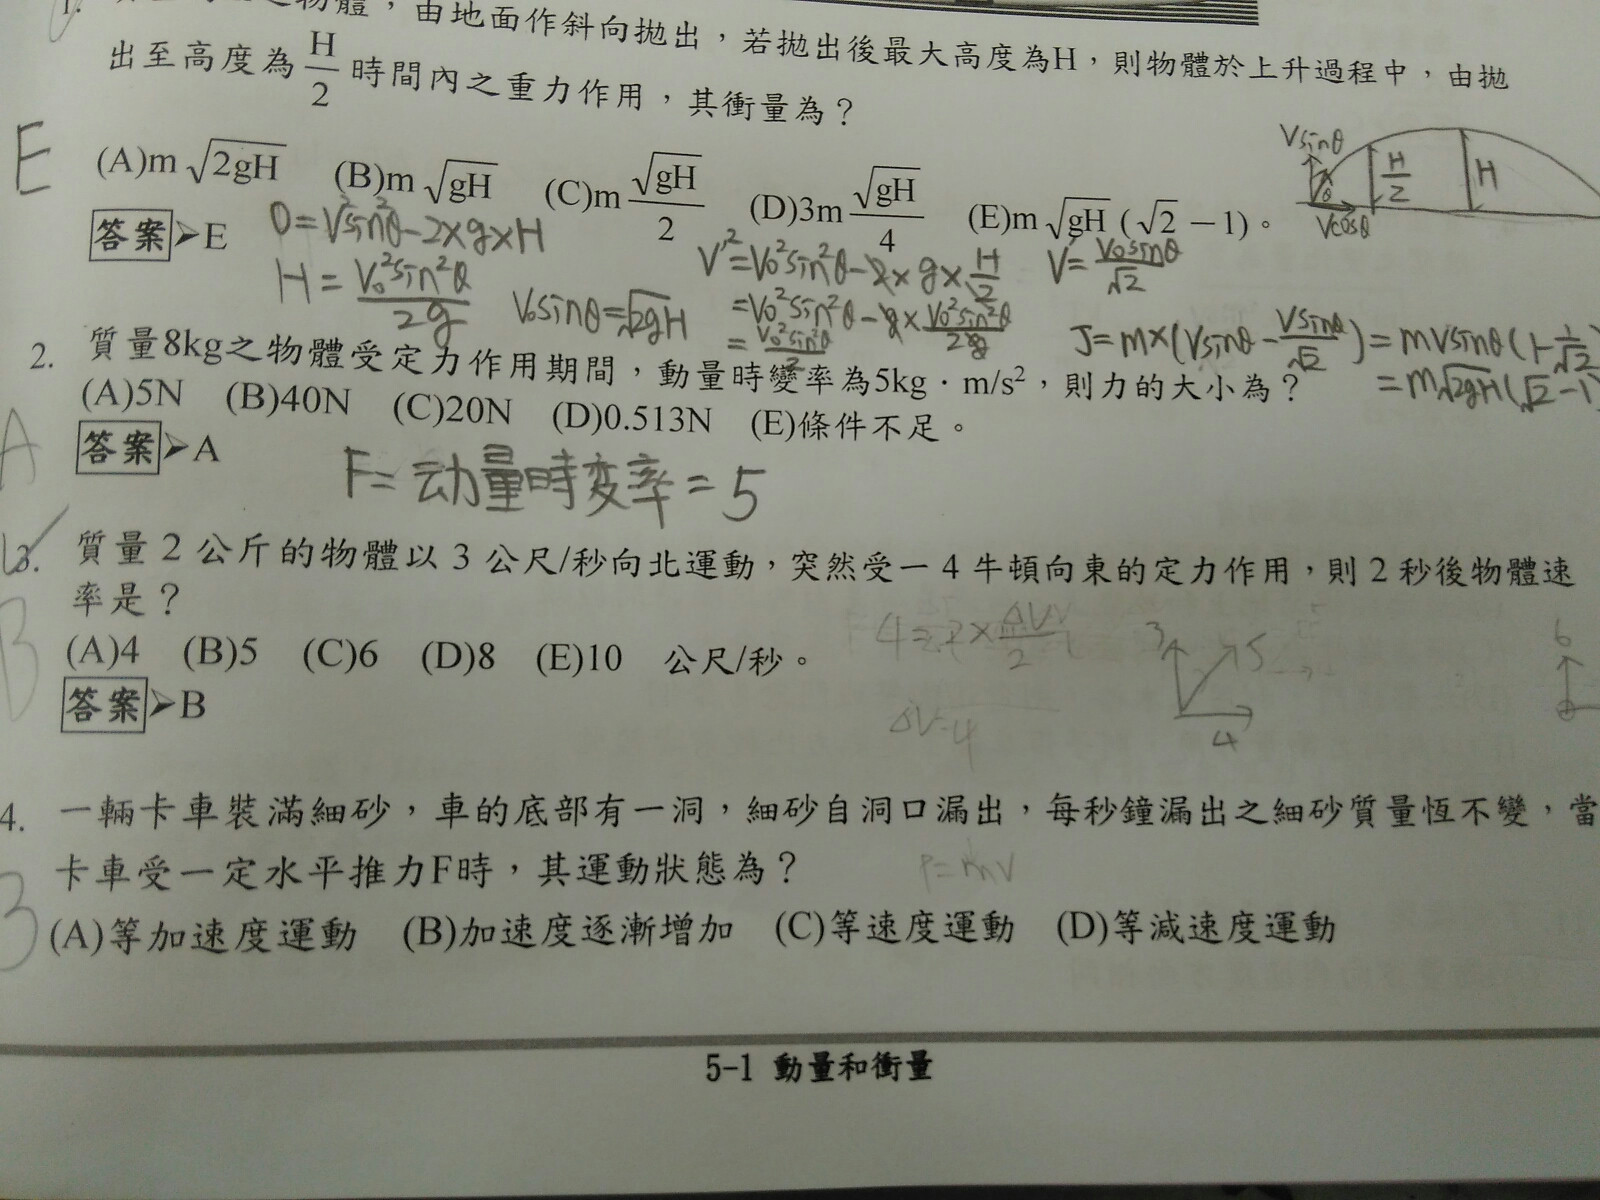 1.
之物體，由地面作斜向拋出，若拋出後最大高度為H，則物體於上升過程中，由拋
出至高度為H/2時間內之重力作用，其衝量為？
E
(A)m√2gH (B)m√gH (C)m√gH/2 (D)3m√gH/4 (E)m√gH(√2－1)。
Vsinθ
H/2
H
θ
Vcosθ
答案➢E
0=V²sin²θ-2×g×H
H=V₀²sin²θ/2g
V₀sinθ=√2gH
V'²=V₀²sin²θ-2×g×H/2
=V₀²sin²θ-g×V₀²sin²θ/2g
=V₀²sin²θ/2
V'=V₀sinθ/√2
J=m×(Vsinθ-Vsinθ/√2)=mVsinθ(1-1/√2
=m√2gH(√2-1)
2. 質量8kg之物體受定力作用期間，動量時變率為5kg．m/s²，則力的大小為？
(A)5N (B)40N (C)20N (D)0.513N (E)條件不足。
A
答案➢A
F=动量時変率=5
3. 質量2公斤的物體以3公尺/秒向北運動，突然受一4牛頓向東的定力作用，則2秒後物體速
率是？
B
(A)4 (B)5 (C)6 (D)8 (E)10 公尺/秒。
答案➢B
4=2×ΔV/2
ΔV=4
3
5
4
6
4. 一輛卡車裝滿細砂，車的底部有一洞，細砂自洞口漏出，每秒鐘漏出之細砂質量恆不變，當
卡車受一定水平推力F時，其運動狀態為？
P=mV
B
(A)等加速度運動 (B)加速度逐漸增加 (C)等速度運動 (D)等減速度運動
5-1 動量和衝量